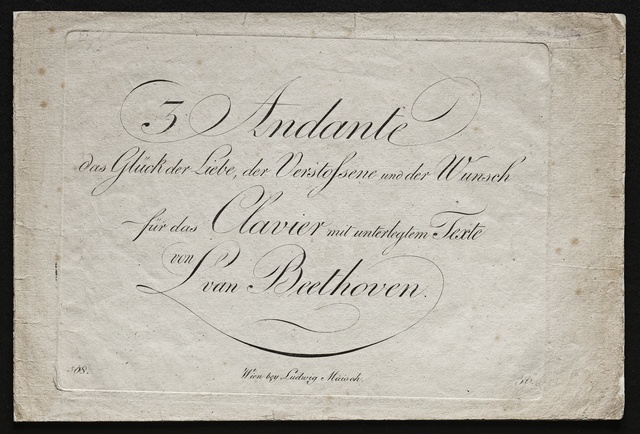 3 Andante
das Glück der Liebe, der Verstoſsene und der Wunsch
für das Clavier mit unterlegtem Texte
von
L. van Beethoven.
508.
Wien bey Ludwig Maisch.